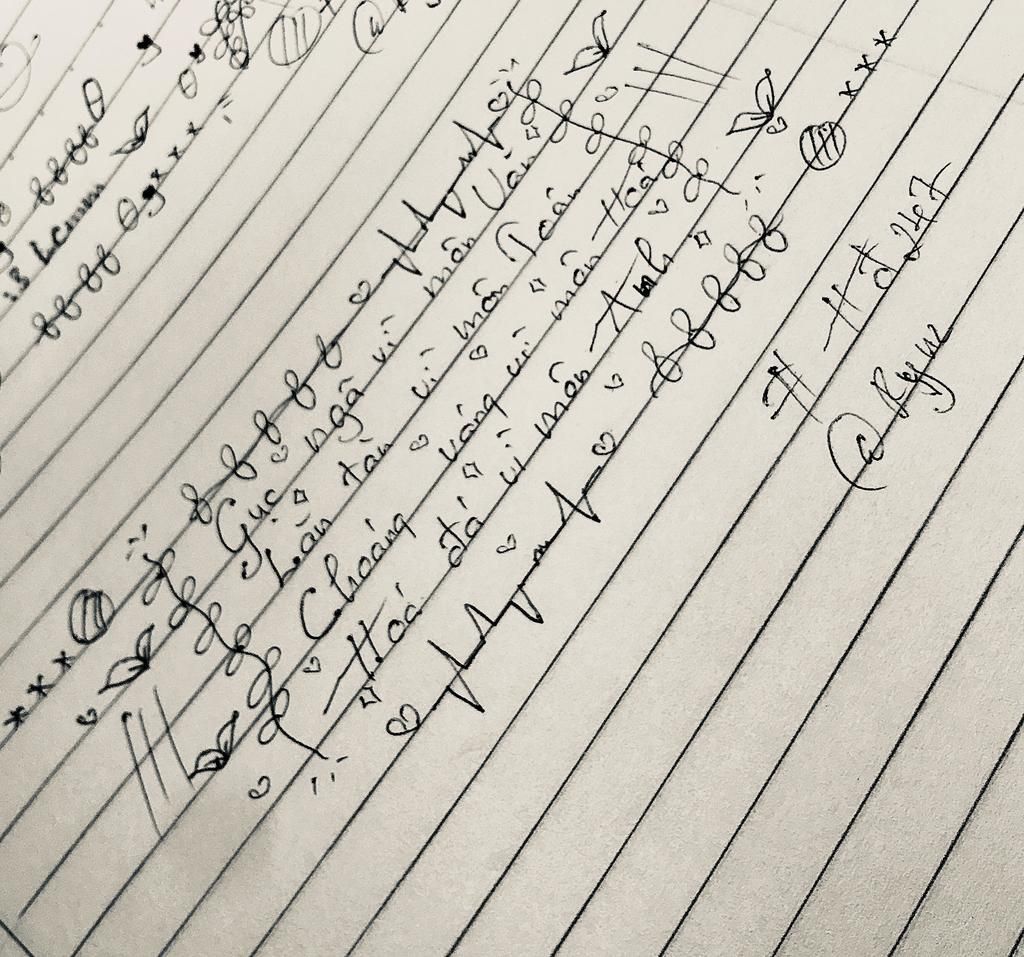 Gục ngã vì môn Văn
Lăn tăn vì môn Toán
Choáng váng vì môn Hoá
Hoá đá vì môn Anh
# Hđ 247
@ Ryu